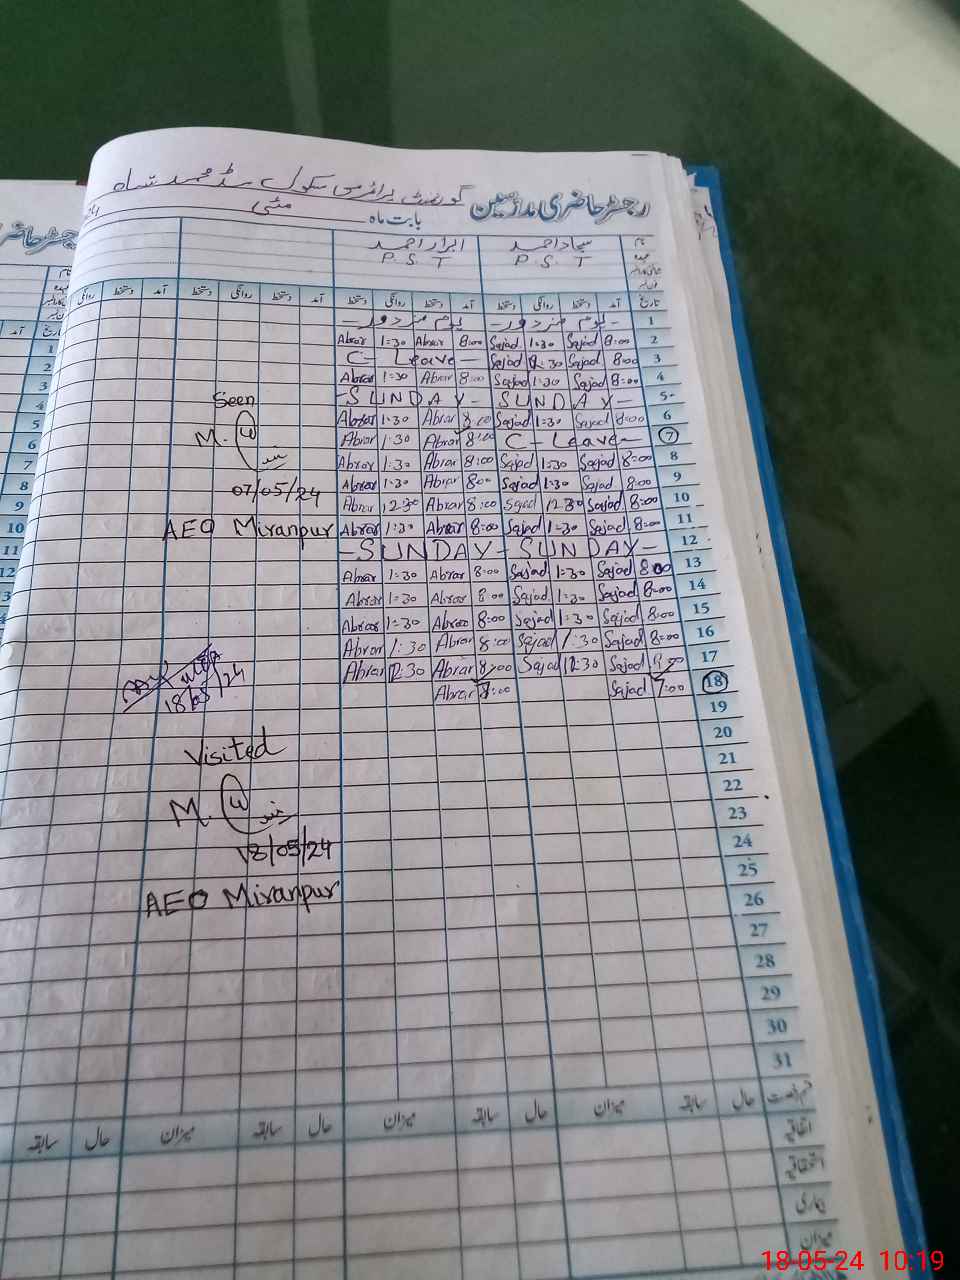 رجسٹر حاضری ملازمین گورنمنٹ پرائمری سکول محمد شاہ
بابت ماہ مئی
نام سجاد احمد ابرار احمد
عہدہ P. S. T P. S. T
تاریخ آمد دستخط روانگی دستخط آمد دستخط روانگی دستخط آمد دستخط روانگی دستخط آمد دستخط روانگی
1 - یوم مزدور - - یوم مزدور -
Abrar 1:30 Abrar 8:00 Sajad 1:30 Sajad 8:00 2
C- Leave - Sajad 30 Sajad 8:00 3
Abrar 1:30 Abrar 8:00 Sajad 1:30 Sajad 8:00 4
-SUNDAY- SUNDAY- 5
Abrar 1:30 Abrar 8:00 Sajad 1:30 Sajad 8:00 6
Abrar 1:30 Abrar 8:00 C- Leave- 7
Abrar 1:30 Abrar 8:00 Sajad 1:30 Sajad 8:00 8
Abrar 1:30 Abrar 8:00 Sajad 1:30 Sajad 8:00 9
Abrar 12:30 Abrar 8:00 Sajad 12:30 Sajad 8:00 10
Abrar 1:30 Abrar 8:00 Sajad 1:30 Sajad 8:00 11
-SUNDAY-SUNDAY- 12
Abrar 1:30 Abrar 8:00 Sajad 1:30 Sajad 8:00 13
Abrar 1:30 Abrar 8:00 Sajad 1:30 Sajad 8:00 14
Abrar 1:30 Abrar 8:00 Sajad 1:30 Sajad 8:00 15
Abrar 1:30 Abrar 8:00 Sajad 1:30 Sajad 8:00 16
Abrar 12:30 Abrar 8:00 Sajad 12:30 Sajad 17
Abrar 7:00 Sajad 7:00 18
19
20
21
22
23
24
25
26
27
28
29
30
31
Seen
M.
07/05/24
AEO Miranpur
MEA
18/05/24
Visited
M.
18/05/24
AEO Miranpur
قسم رخصت حال سابقہ میزان حال سابقہ میزان حال سابقہ میزان حال سابقہ
اتفاقیہ
استحقاقیہ
بیماری
میزان
رجسٹر حاضر
تاریخ آمد
1
2
3
4
5
6
7
8
9
10
11
12
18-05-24 10:19